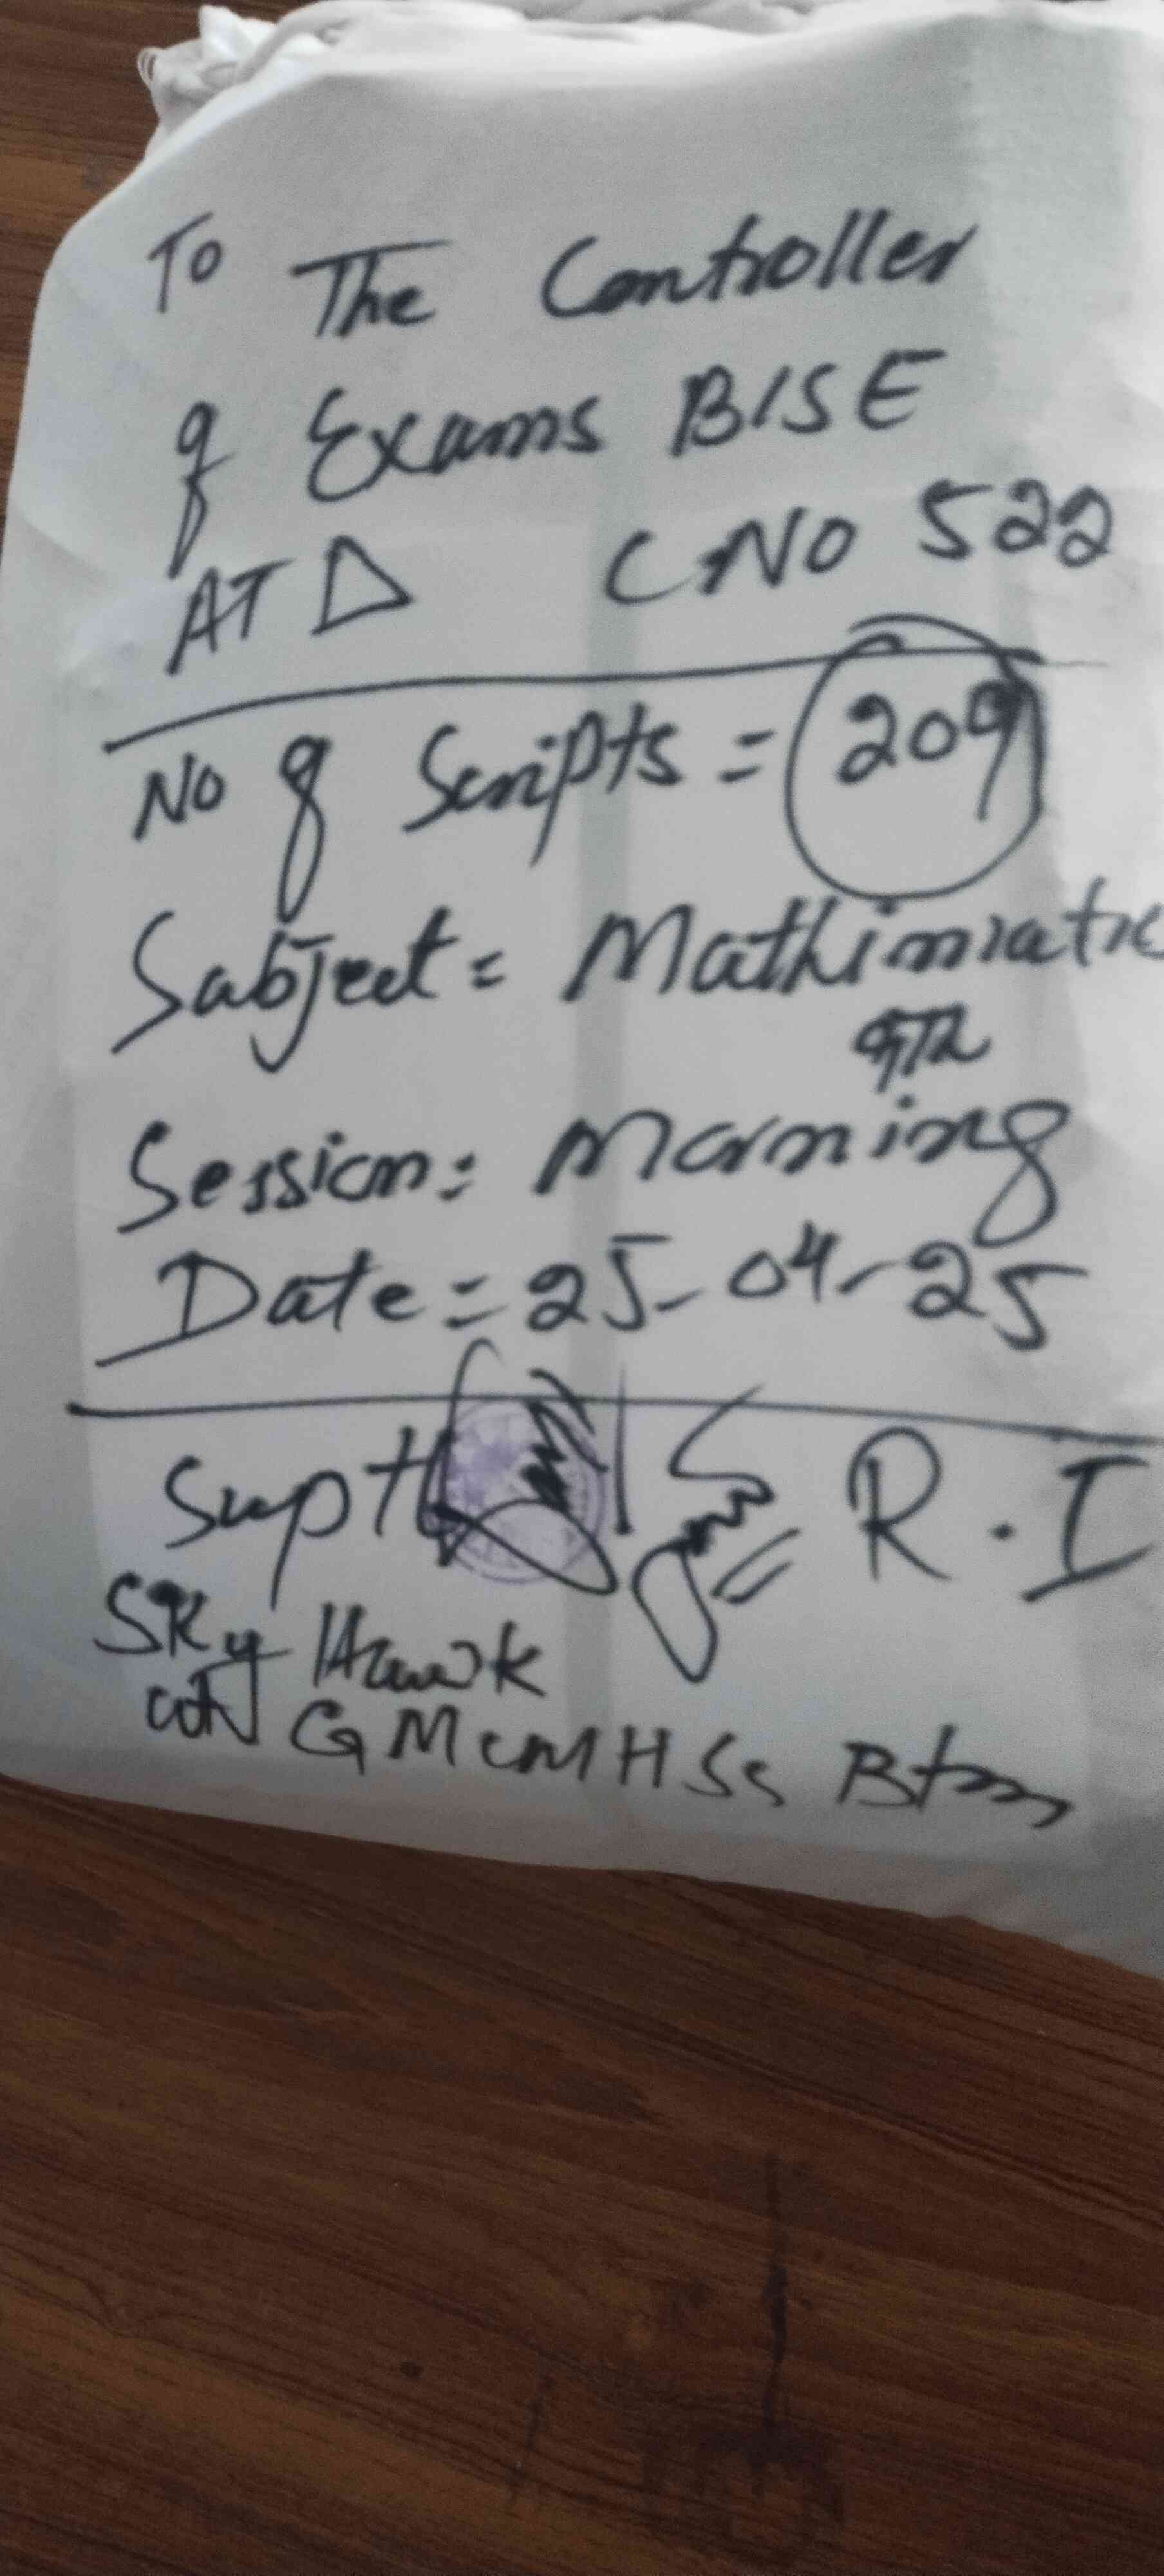 To The Controller
of Exams BISE
ATD CNO 522
No of Scripts = 209
Subject = Mathimatic
9th
Session: Morning
Date = 25-04-25
Supt R.I
Sky Hawk
GMCMHSS Btm